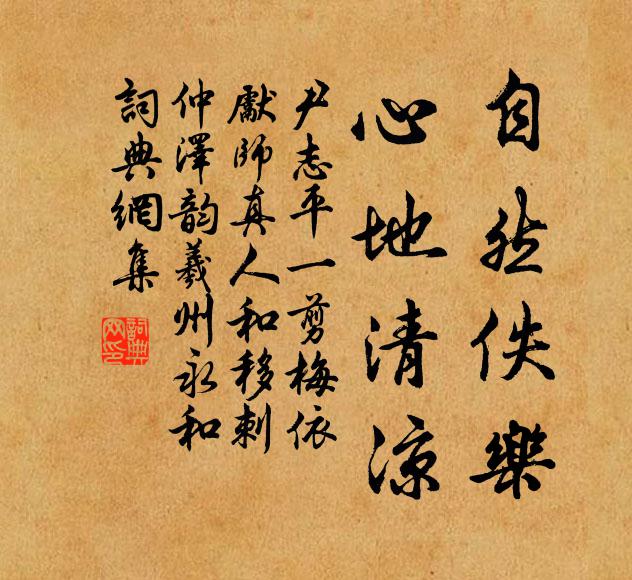 自然佚樂
心地清涼
尹志平一剪梅依
獻師真人和移刺
仲澤韵義州永和
詞典網集
詞典
网印